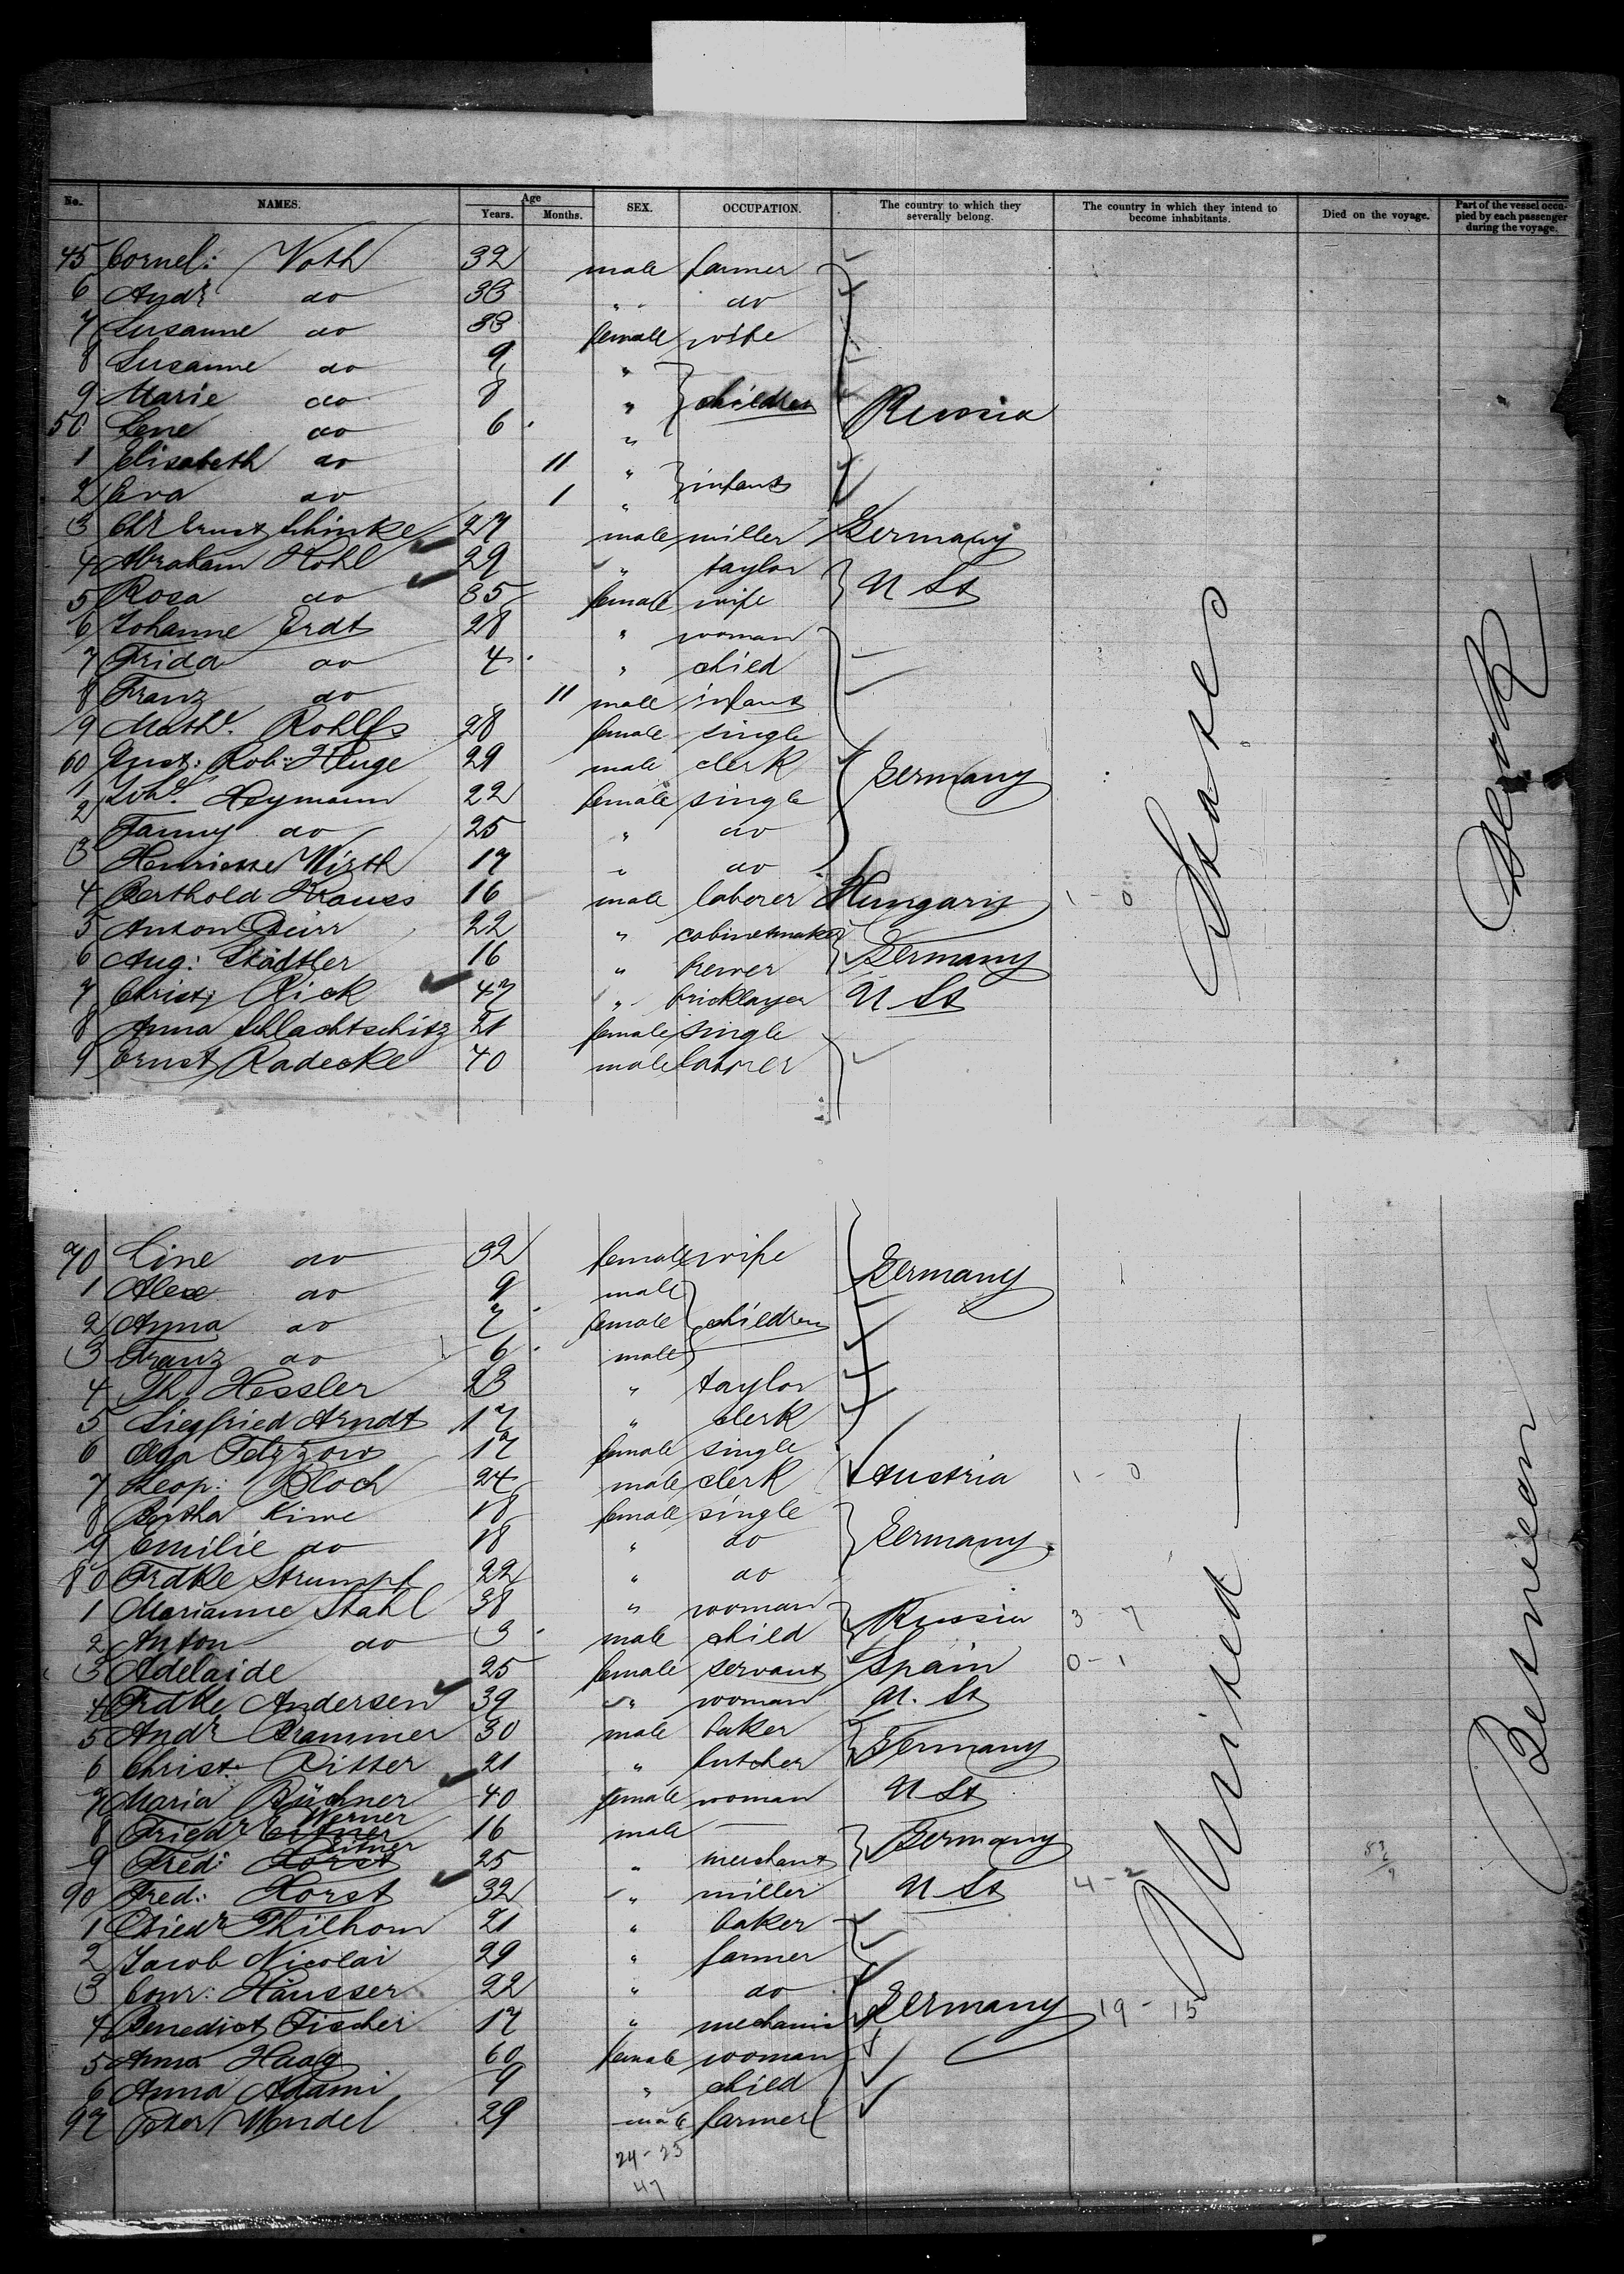 No. NAMES. Age Years. Months. SEX. OCCUPATION. The country to which they severally belong. The country in which they intend to become inhabitants. Died on the voyage. Part of the vessel occupied by each passenger during the voyage.
45 Cornel: Voth 32 male farmer
6 Andr do 33 " do
7 Susanne do 33 female wife
8 Susanne do 9 "
9 Marie do 8 " children Russia
50 Lene do 6 "
1 Elisabeth do 11 " infants
2 Eva do 1 "
3 Chr Ernst Schinke 27 male miller Germany
4 Abraham Hohl 29 " taylor U St
5 Rosa do 35 female wife
6 Johanne Erdt 28 " woman
7 Frida do 4 " child
8 Franz do 11 male infant
9 Math. Rohlfs 28 female single
60 Gust: Rob: Henge 29 male clerk Germany
1 Heymann 22 female single
2 Fanny do 25 " do
3 Henriette Wirth 17 " do
4 Berthold Krauss 16 male laborer Hungary 1 - 0
5 Anton Dürr 22 " cabinetmaker Germany
6 Aug: Städtler 16 " brewer
7 Christ: Rick 47 " bricklayer U St
8 Anna Schlachtschitz 21 female single
9 Ernst Radecke 40 male laborer
70 Line do 32 female wife Germany
1 Alex do 9 male
2 Anna do 7 female children
3 Franz do 6 male
4 Th. Hessler 23 " taylor
5 Siegfried Arndt 17 " clerk
6 Olga Petzzow 17 female single
7 Leop: Bloch 24 male clerk Austria 1 - 0
8 Bertha Kirve 18 female single
9 Emilie do 18 " do Germany
80 Frdke Strumpf 22 " do
1 Marianne Stahl 38 " woman Russia 3 - 7
2 Anton do 3 male child
3 Adelaide 25 female servant Spain 0 - 1
4 Frdke Andersen 39 " woman U. St
5 Andr Brammer 30 male baker Germany
6 Christ: Ritter 21 " butcher
7 Maria Büchner 40 female woman U St
8 Friedr Werner 16 male — Germany
9 Fred: Horst Eitner 25 " merchant
90 Fred: Horst 32 " miller U St 4 - 2
1 Diedr Thilhorn 21 " baker
2 Jacob Nicolai 29 " farmer
3 Conr: Häusser 22 " do
4 Benedict Fischer 17 " mechanic Germany 19 - 15
5 Anna Haag 60 female woman
6 Anna Adami 9 " child
97 Peter Wendel 29 male farmer
24 - 23
47
United States
Between Deck